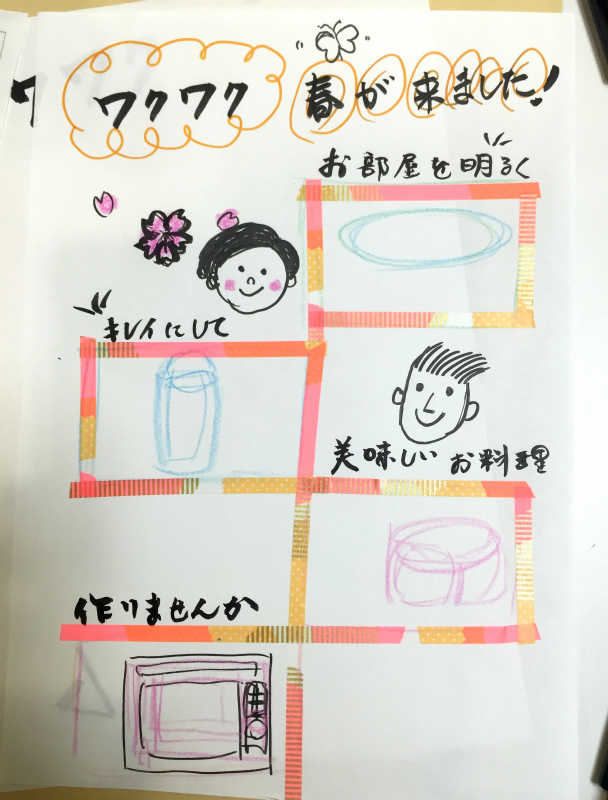 ワクワク 春が来ました!
お部屋を明るく
キレイにして
美味しい お料理
作りませんか